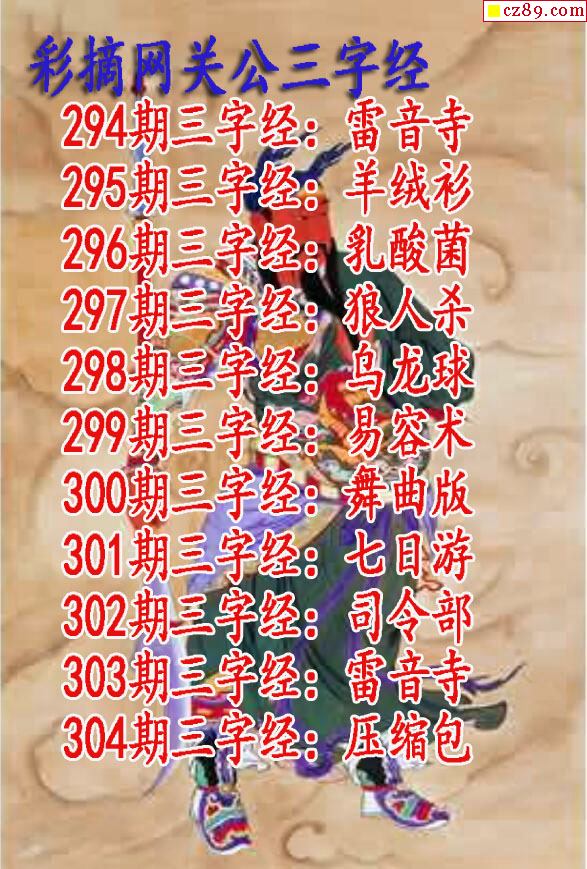 cz89.com
彩摘网关公三字经
294期三字经：雷音寺
295期三字经：羊绒衫
296期三字经：乳酸菌
297期三字经：狼人杀
298期三字经：乌龙球
299期三字经：易容术
300期三字经：舞曲版
301期三字经：七日游
302期三字经：司令部
303期三字经：雷音寺
304期三字经：压缩包